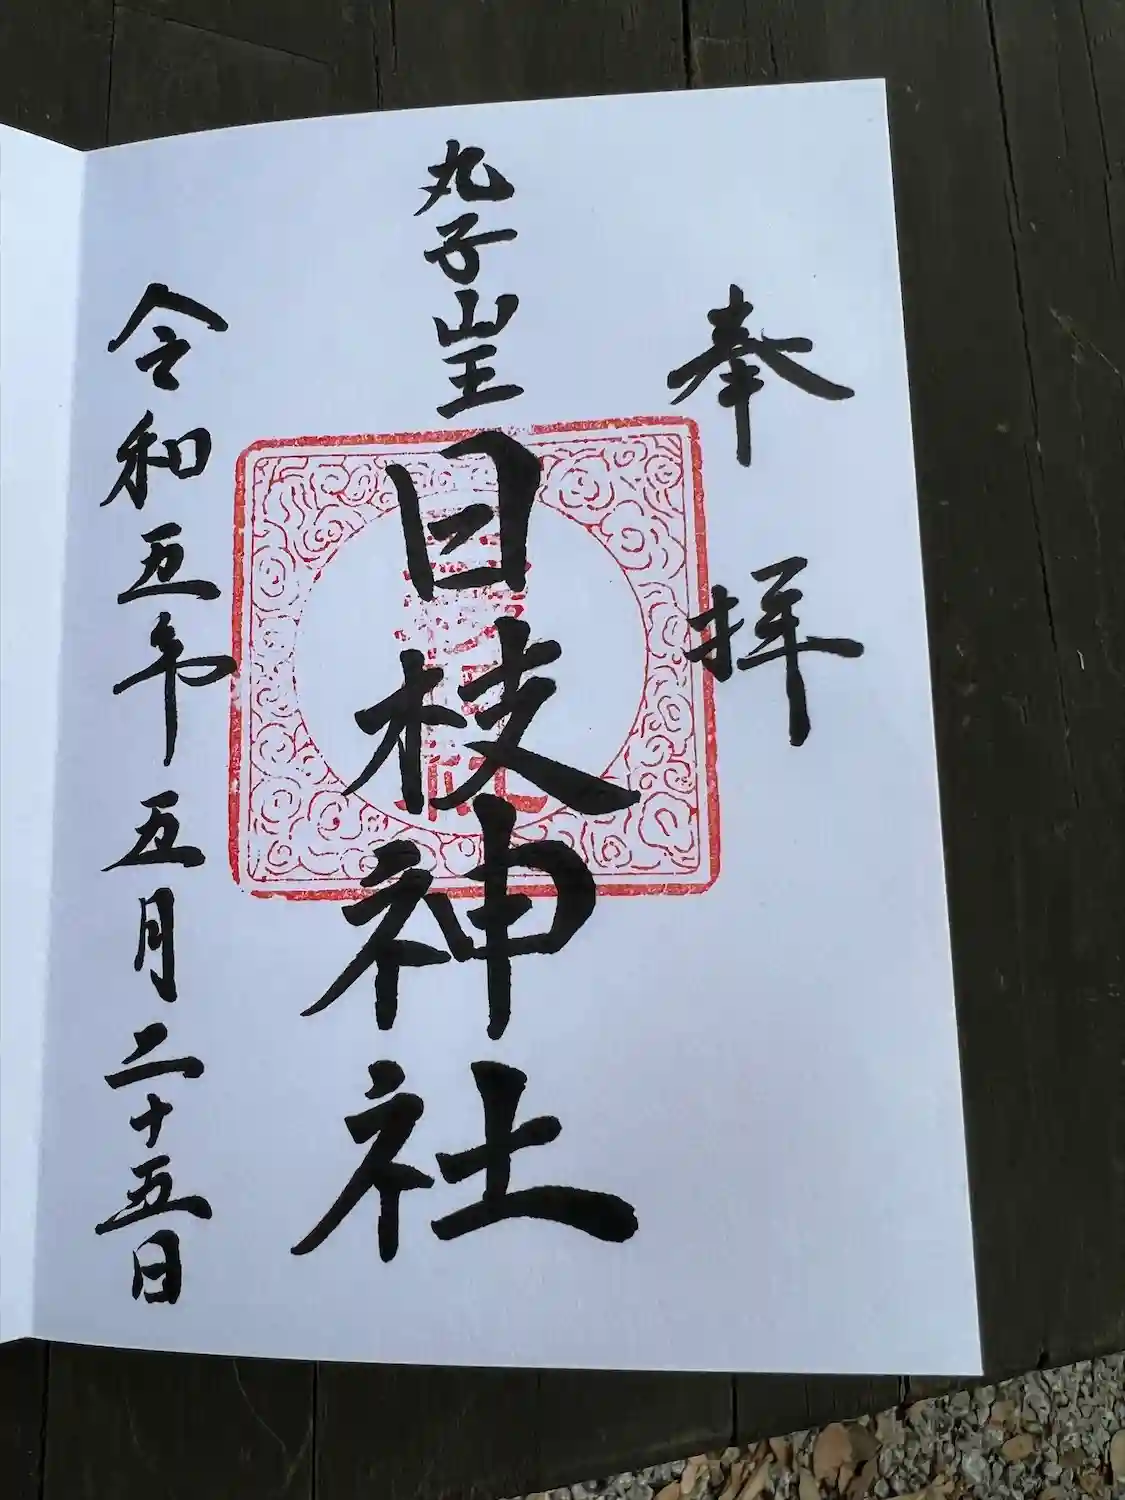 奉拝
丸子山王
日枝神社
令和五年五月二十五日